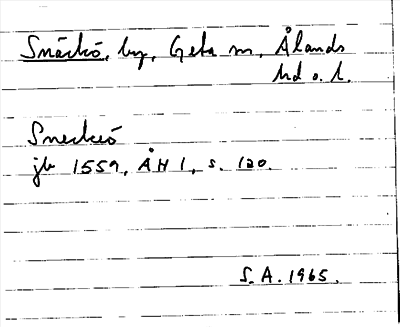 Snäckö, by, Geta sn, Ålands
hd o. l.
Sneckeö
jb 1559, ÅH 1, s. 120.
S. A. 1965.